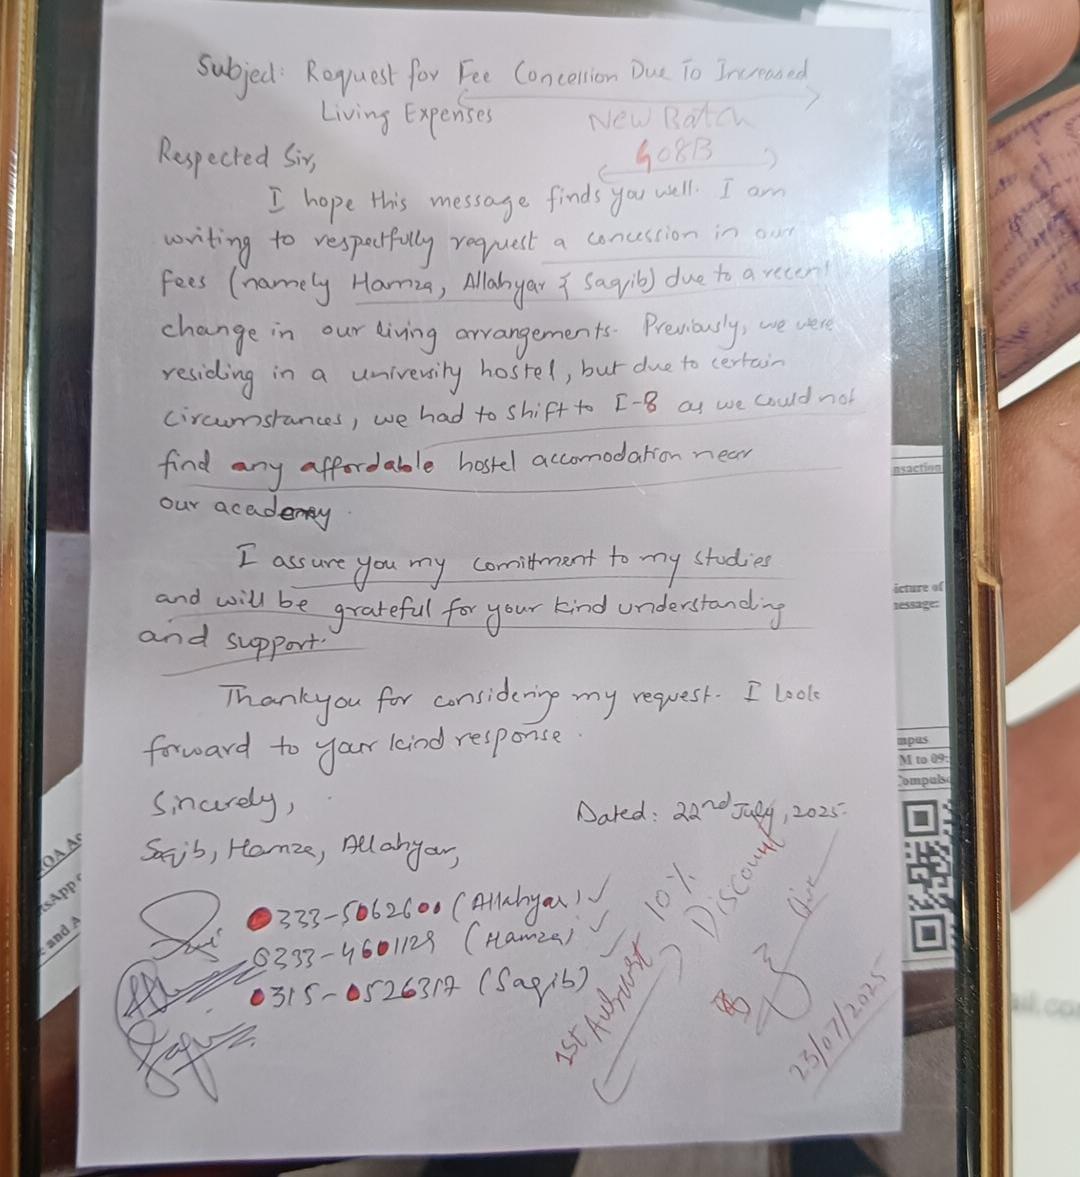 Subject: Request for Fee Concession Due To Increased
Living Expenses
New Batch
G08B
Respected Sir,
I hope this message finds you well. I am
writing to respectfully request a concession in our
fees (namely Hamza, Allahyar & Saqib) due to a recent
change in our living arrangements. Previously, we were
residing in a university hostel, but due to certain
circumstances, we had to shift to I-8 as we could not
find any affordable hostel accomodation near
our academy.
I assure you my comittment to my studies
and will be grateful for your kind understanding
and support.
Thankyou for considering my request. I look
forward to your kind response.
Sincerely,
Dated: 22nd July, 2025.
Saqib, Hamza, Allahyar,
0333-5062600 (Allahyar)
0333-4601129 (Hamza)
0315-0526317 (Saqib)
1st August 10%
Discount
23/07/2025
nsaction
icture of
essage:
mpus
M to 09:
Compuls
and A
ail.co